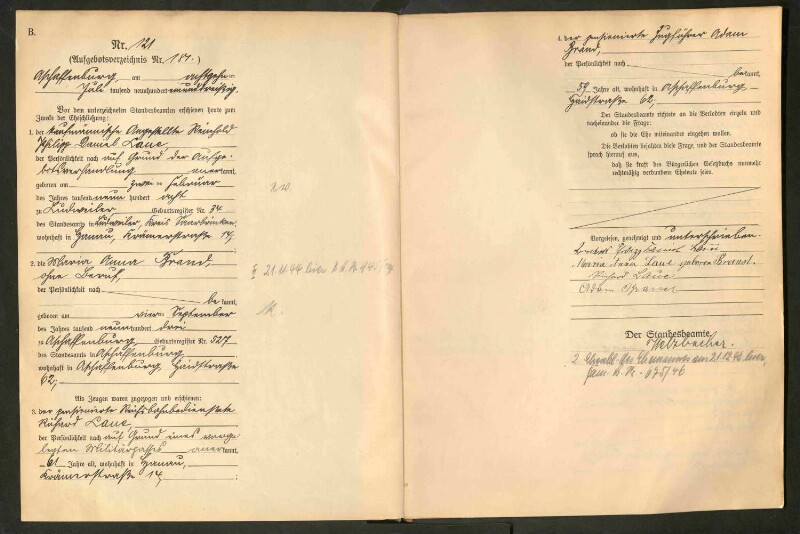 B.
Nr. 121
(Aufgebotsverzeichnis Nr. 181.)
Aschaffenburg, am achtzehnten
Juli tausend neunhundert neununddreißig.
Vor dem unterzeichneten Standesbeamten erschienen heute zum
Zwecke der Eheschließung:
1. der kaufmännische Angestellte Reinhold
Philipp Daniel Laue,
der Persönlichkeit nach auf Grund der Aufge-
botsverhandlung anerkannt,
geboren am zweiten Februar
des Jahres tausend neunhundert acht
zu Ludweiler Geburtsregister Nr. 34
des Standesamts in Ludweiler, Kreis Saarbrücken,
wohnhaft in Hanau, Krämerstraße 14,
2. die Maria Anna Brand,
ohne Beruf,
der Persönlichkeit nach
bekannt,
geboren am vierten September
des Jahres tausend neunhundert drei
zu Aschaffenburg Geburtsregister Nr. 527
des Standesamts in Aschaffenburg,
wohnhaft in Aschaffenburg, Haidstraße
62,
Als Zeugen waren zugezogen und erschienen:
3. der pensionierte Reichsbahnbedienstete
Richard Laue,
der Persönlichkeit nach auf Grund eines vorge-
legten Militärpasses anerkannt,
61 Jahre alt, wohnhaft in Hanau,
Krämerstraße 14,
21.11.44
4. der pensionierte Zugführer Adam
Brand,
der Persönlichkeit nach
bekannt,
Jahre alt, wohnhaft in Aschaffenburg,
Haidstraße 62,
Der Standesbeamte richtete an die Verlobten einzeln und
nacheinander die Frage:
ob sie die Ehe miteinander eingehen wollen.
Die Verlobten bejahten diese Frage, und der Standesbeamte
sprach hierauf aus,
daß sie kraft des Bürgerlichen Gesetzbuchs nunmehr
rechtmäßig verbundene Eheleute seien.
Vorgelesen, genehmigt und unterschrieben.
Maria Anna Laue geborene Brand
Richard Laue
Adam Brand
Der Standesbeamte.
2. Eheschl. des Ehemannes am 21.12.46 hier,
Fam. B. Nr. 675/46